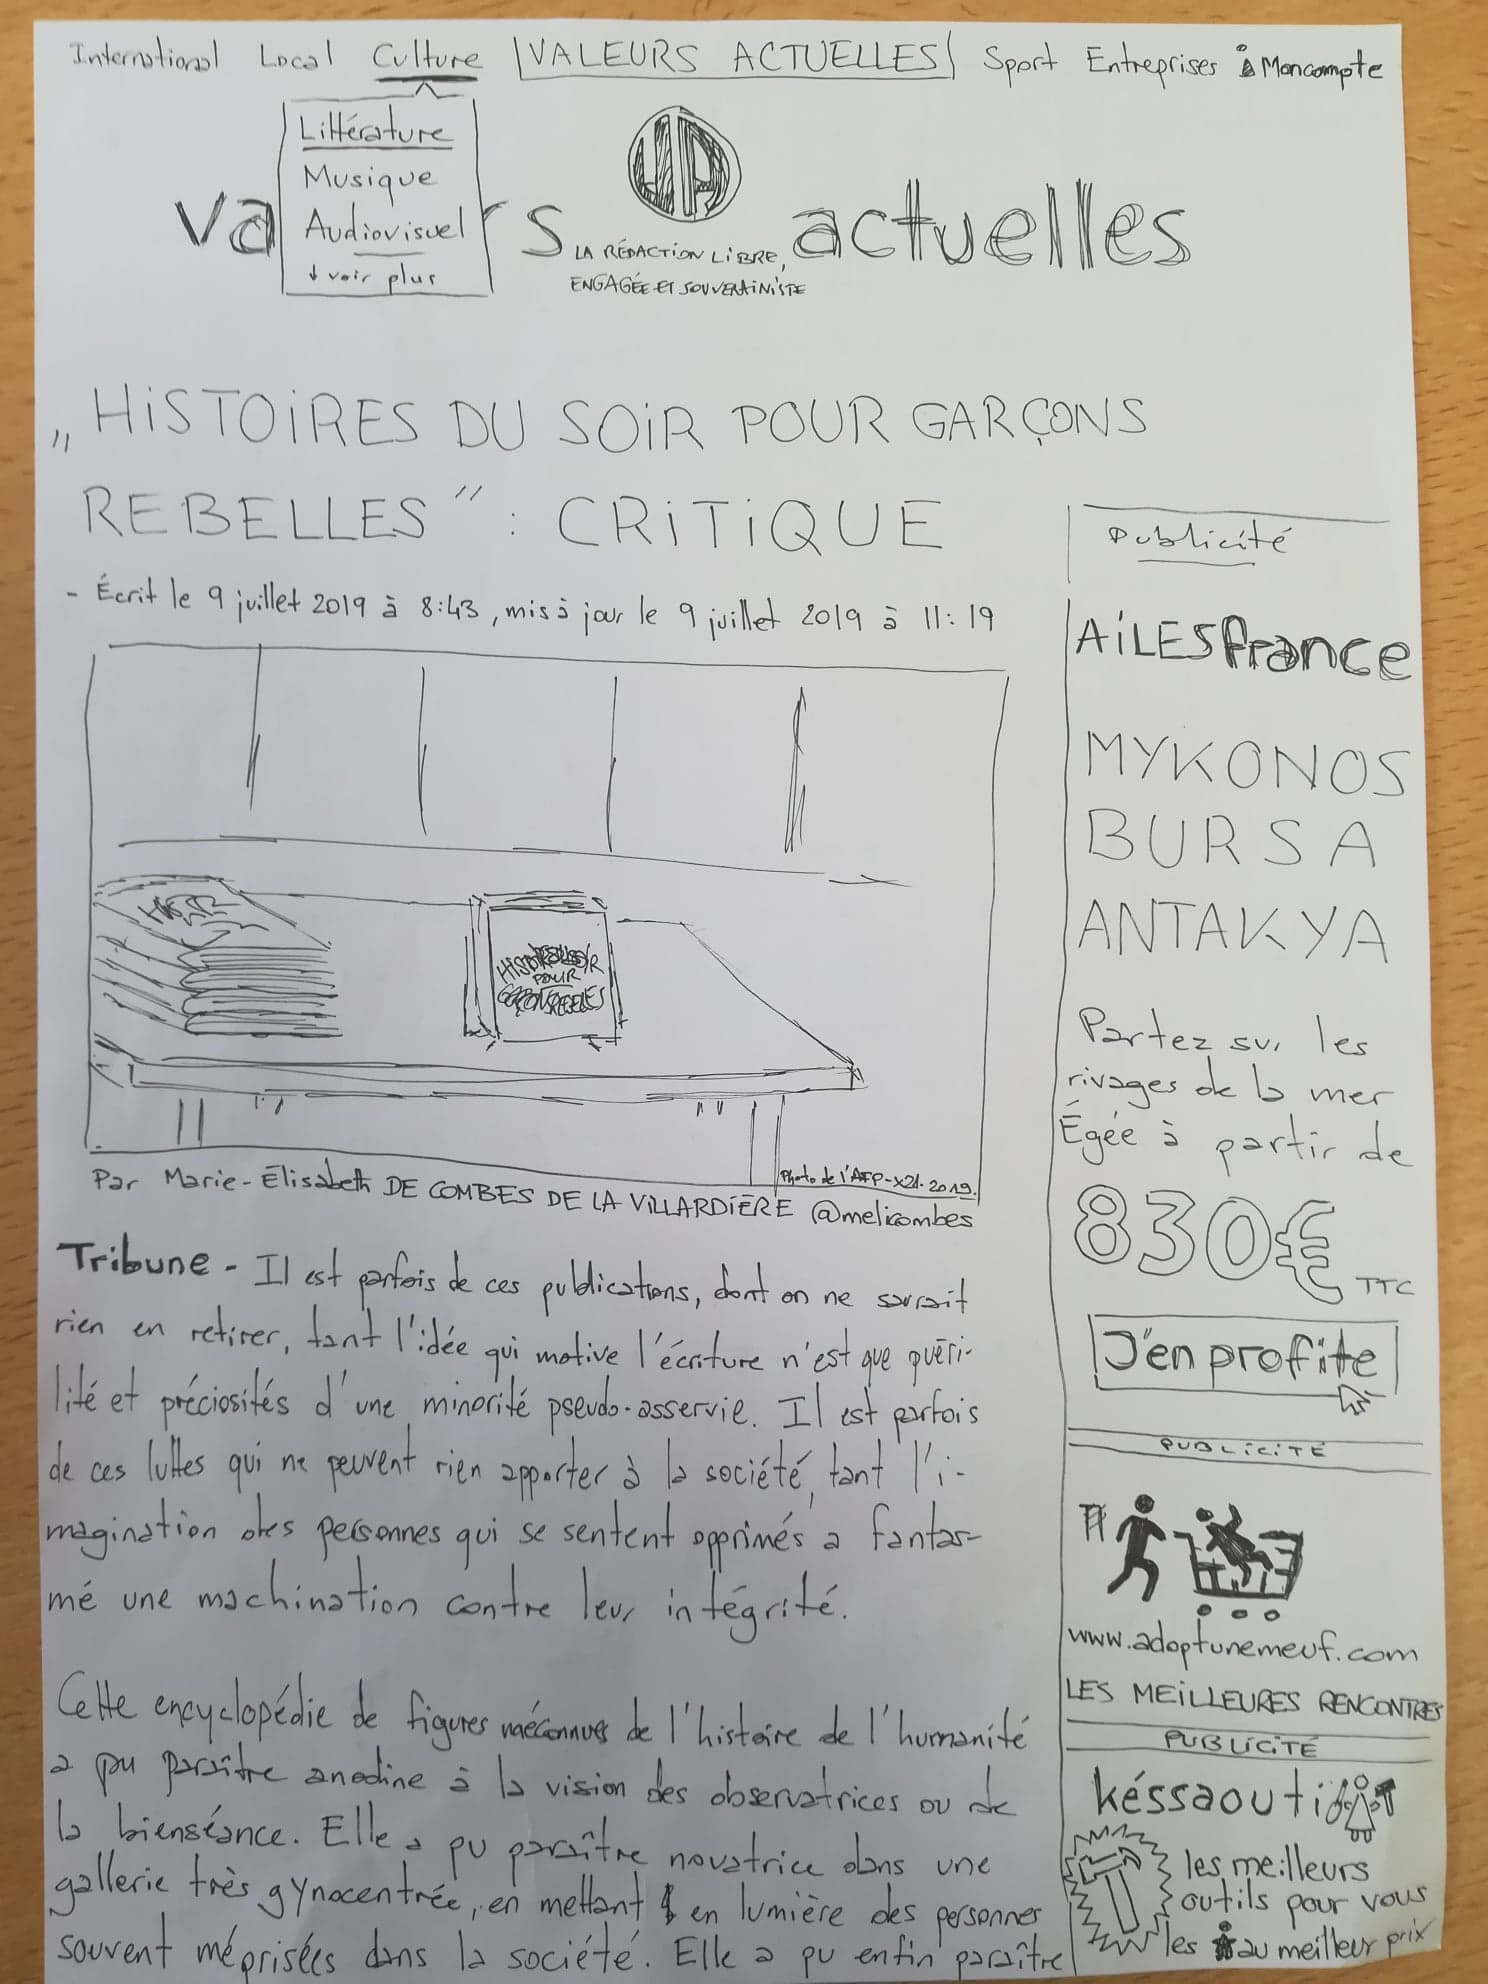 International Local Culture VALEURS ACTUELLES Sport Entreprises Moncompte
Littérature
Musique
Audiovisuel
↓ voir plus
va rs VA actuelles
LA RÉDACTION LIBRE,
ENGAGÉE ET SOUVERAINISTE
„HISTOIRES DU SOIR POUR GARÇONS
REBELLES" : CRITIQUE
- Écrit le 9 juillet 2019 à 8:43, mis à jour le 9 juillet 2019 à 11:19
HISTOIRES DU SOIR
POUR
GARÇONS REBELLES
Photo de l'AFP-X21-2019.
Par Marie-Élisabeth DE COMBES DE LA VILLARDIÈRE @melicombes
Tribune - Il est parfois de ces publications, dont on ne saurait
rien en retirer, tant l'idée qui motive l'écriture n'est que puéri-
lité et préciosités d'une minorité pseudo-asservie. Il est parfois
de ces luttes qui ne peuvent rien apporter à la société, tant l'i-
magination des personnes qui se sentent opprimés a fantas-
mé une machination contre leur intégrité.
Cette encyclopédie de figures méconnues de l'histoire de l'humanité
a pu paraître anodine à la vision des observatrices ou de
la bienséance. Elle a pu paraître novatrice dans une
gallerie très gynocentrée, en mettant en lumière des personnes
souvent méprisées dans la société. Elle a pu enfin paraître
Publicité
AILESfrance
MYKONOS
BURSA
ANTAKYA
Partez sur les
rivages de la mer
Égée à partir de
830€ TTC
J'en profite
PUBLICITÉ
www.adoptunemeuf.com
LES MEILLEURES RENCONTRES
PUBLICITÉ
késsaouti
les meilleurs
outils pour vous
les au meilleur prix